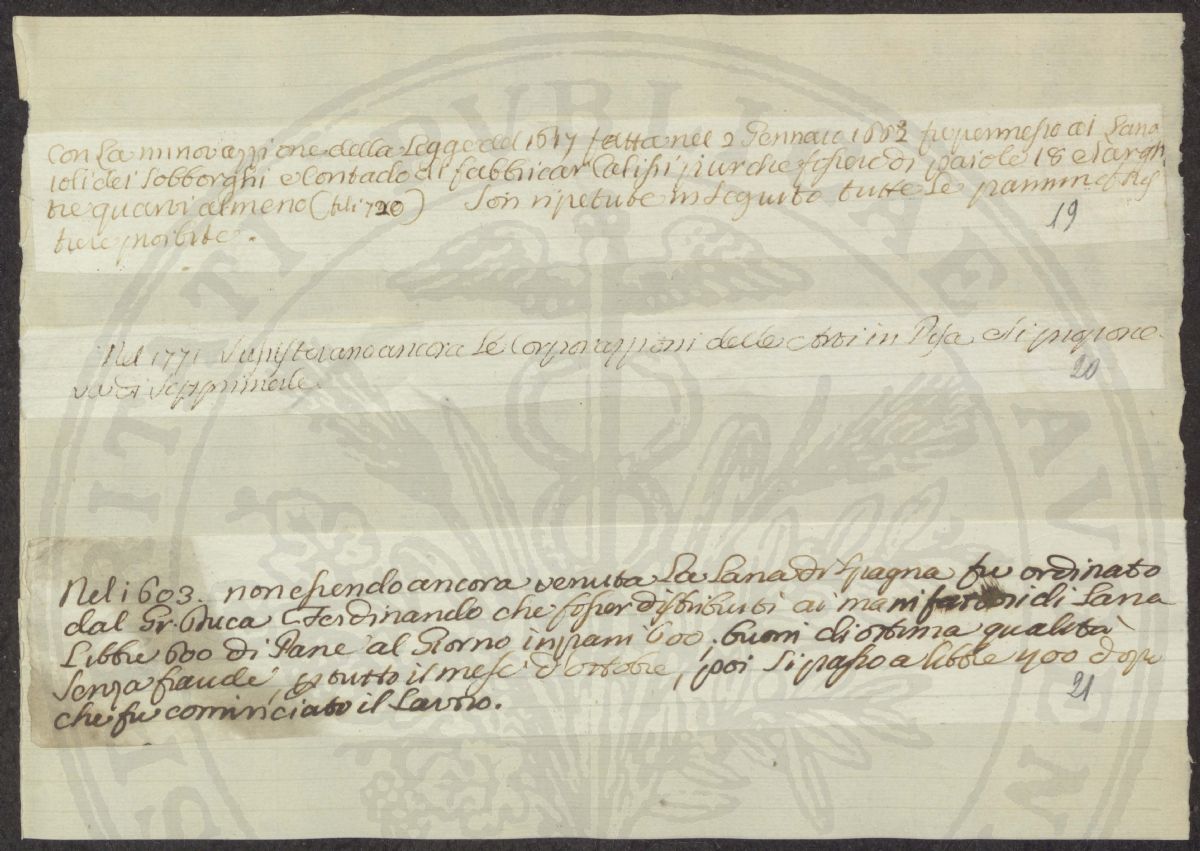 Con la rinovazzione della Legge del 1617 fatta nel 2 Gennaio 1662 fu permesso ai Lana
ioli dei Sobborghi e Contado di fabbricar Calisi purche fossero di paiole 18 e largh
tre quarti almeno (fili 720) Son ripetute in seguito tutte le
proibite.
19
Nel 1771 sussistevano ancora le Corporazzioni delle Arti in Pisa e si propone
va di sopprimerle
20
Nel 1603. non essendo ancora venuta la Lana di Spagna fu ordinato
dal Gr. Duca Ferdinando che fosser distribuiti ai manifattori di Lana
Libbre 600 di Pane al Giorno in pani 600, buoni di ottima qualità
senza fraude, p tutto il mese d'ottobre, poi si passo a libbre 400 dopo
che fu cominciato il Lavoro.
21